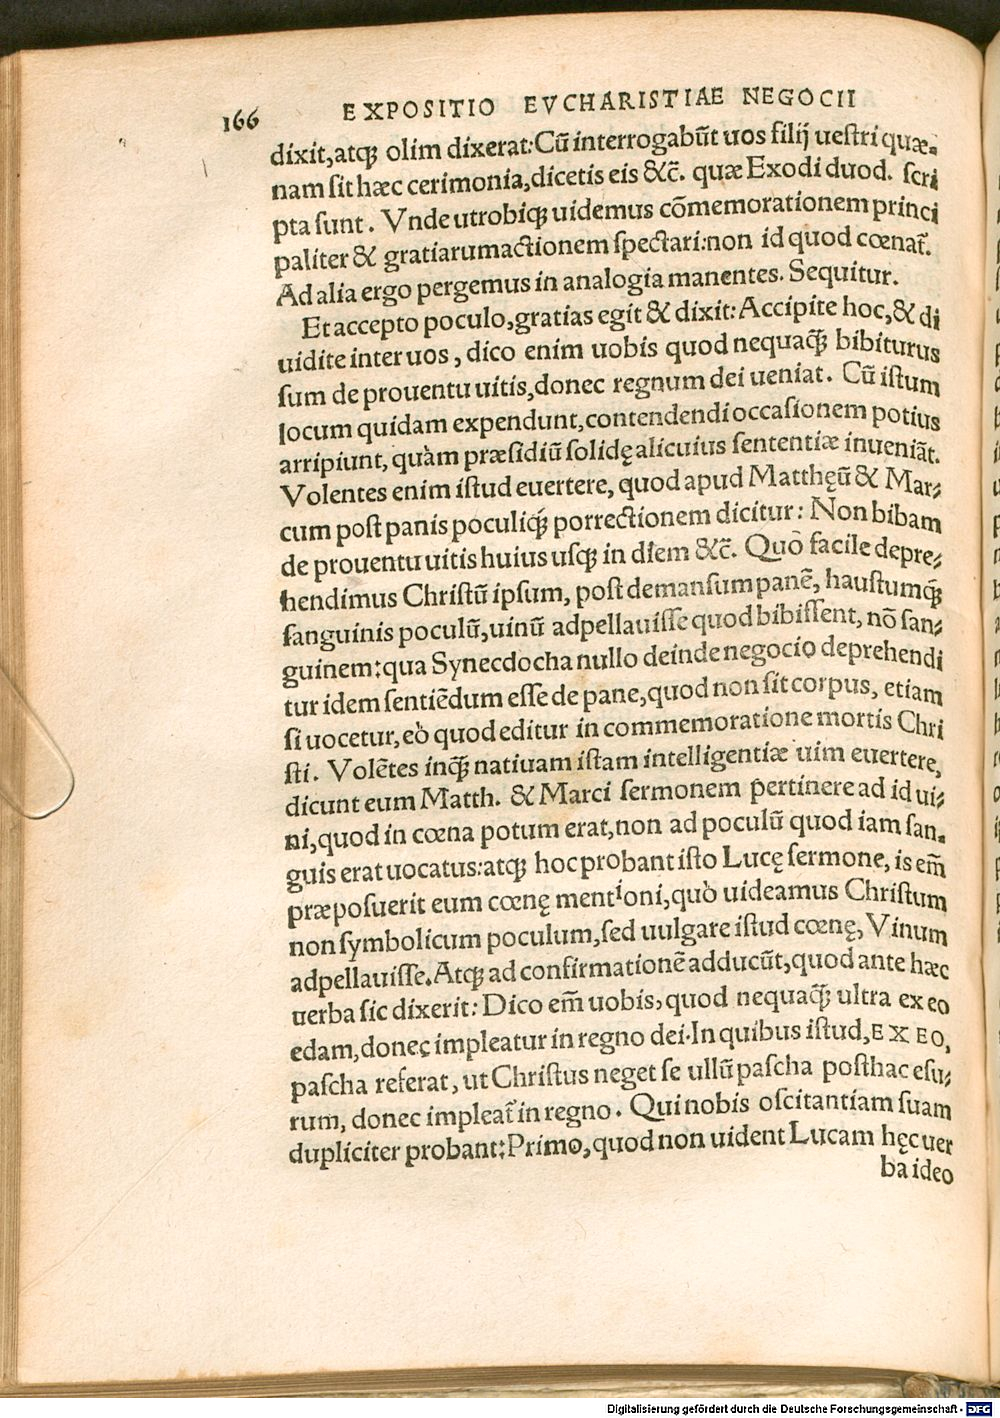 166 EXPOSITIO EVCHARISTIAE NEGOCII
dixit,atq́; olim dixerat:Cũ interrogabũt uos filij uestri quæ-
nam sit hæc cerimonia,dicetis eis &c̃. quæ Exodi duod. scri
pta sunt. Vnde utrobiq́; uidemus cõmemorationem princi
paliter & gratiarumactionem spectari:non id quod cœnat̃.
Ad alia ergo pergemus in analogia manentes. Sequitur.
Et accepto poculo,gratias egit & dixit:Accipite hoc,& di
uidite inter uos, dico enim uobis quod nequaq̃; bibiturus
sum de prouentu uitis,donec regnum dei ueniat. Cũ istum
locum quidam expendunt,contendendi occasionem potius
arripiunt,quàm præsidiũ solidę alicuius sententiæ inueniãt.
Volentes enim istud euertere, quod apud Matthęũ & Mar⸗
cum post panis poculiq́; porrectionem dicitur: Non bibam
de prouentu uitis huius usq́; in diem &c̃. Quò facile depre⸗
hendimus Christũ ipsum, post demansum panẽ, haustumq́;
sanguinis poculũ,uinũ adpellauisse quod bibissent, nõ san⸗
guinem:qua Synecdocha nullo deinde negocio deprehendi
tur idem sentiẽdum esse de pane,quod non sit corpus, etiam
si uocetur,eò quod editur in commemoratione mortis Chri
sti. Volẽtes inq̃; natiuam istam intelligentiæ uim euertere,
dicunt eum Matth. & Marci sermonem pertinere ad id ui⸗
ni,quod in cœna potum erat,non ad poculũ quod iam san-
guis erat uocatus:atq́; hoc probant isto Lucę sermone, is em̃
præposuerit eum cœnę mentioni,quò uideamus Christum
non symbolicum poculum,sed uulgare istud cœnę, Vinum
adpellauisse.Atq́; ad confirmationẽ adducũt,quod ante hæc
uerba sic dixerit: Dico em̃ uobis,quod nequaq̃; ultra ex eo
edam,donec impleatur in regno dei.In quibus istud,EX EO,
pascha referat, ut Christus neget se ullũ pascha posthac esu⸗
rum, donec impleat̃ in regno. Qui nobis oscitantiam suam
dupliciter probant:Primo,quod non uident Lucam hęc uer
ba ideo
Digitalisierung gefördert durch die Deutsche Forschungsgemeinschaft - DFG